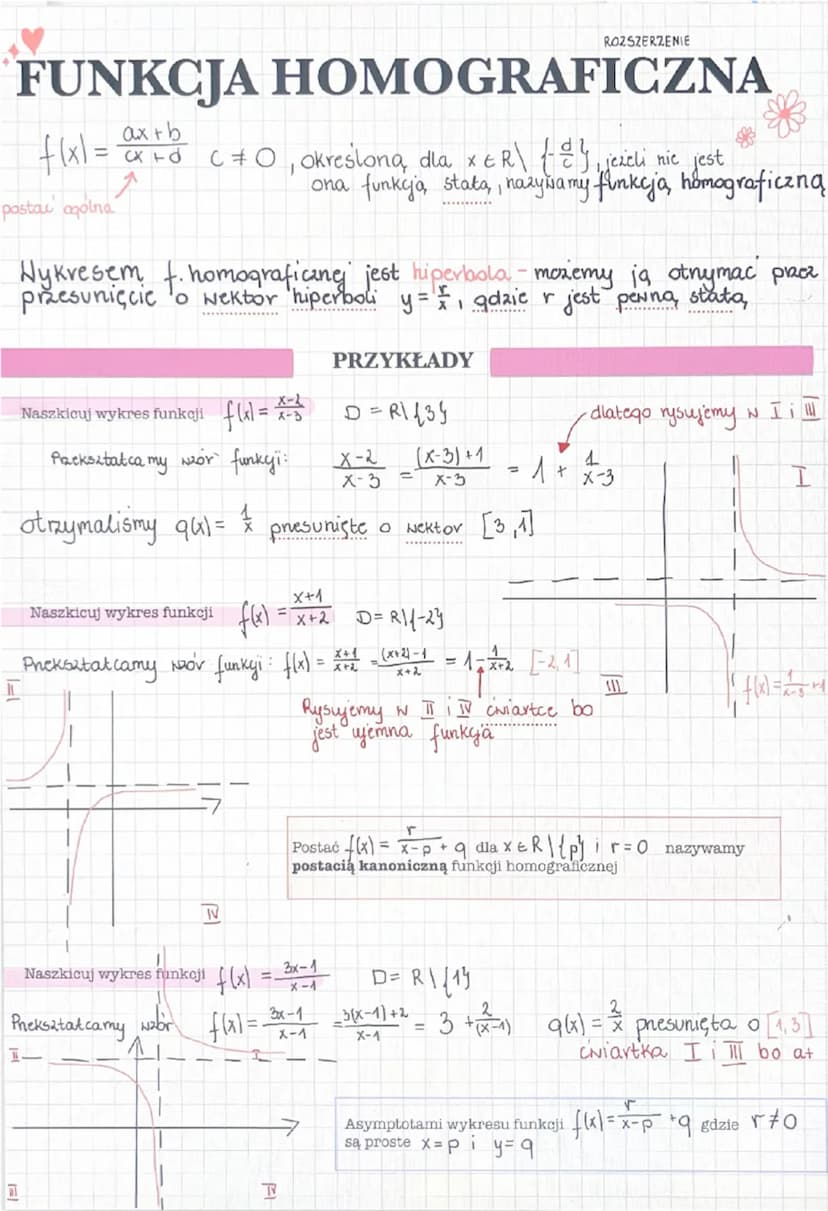 ROZSZERZENIE
FUNKCJA HOMOGRAFICZNA
f(x) = ax+b / cx+d c ≠ 0, określoną dla x ∈ R \ {-d/c}, jeżeli nie jest
ona funkcją stałą, nazywamy funkcją homograficzną
postać ogólna
Wykresem f. homograficznej jest hiperbola - możemy ją otrzymać przez
przesunięcie o wektor hiperboli y = r/x, gdzie r jest pewną stałą
PRZYKŁADY
Naszkicuj wykres funkcji f(x) = x-2 / x-3 D = R\{3}
dlatego rysujemy w I i III
Przekształcamy wzór funkcji: x-2 / x-3 = (x-3)+1 / x-3 = 1 + 1 / x-3
I
otrzymaliśmy g(x) = 1/x przesunięte o wektor [3,1]
Naszkicuj wykres funkcji f(x) = x+1 / x+2 D = R\{-2}
Przekształcamy wzór funkcji: f(x) = x+1 / x+2 = (x+2)-1 / x+2 = 1 - 1 / x+2 [-2,1]
II
III
f(x) = 1 / x-3 +1
Rysujemy w II i IV ćwiartce bo
jest ujemna funkcja
Postać f(x) = r / x-p + q dla x ∈ R\{p} i r = 0 nazywamy
postacią kanoniczną funkcji homograficznej
IV
Naszkicuj wykres funkcji f(x) = 3x-1 / x-1 D = R\{1}
Przekształcamy wzór f(x) = 3x-1 / x-1 = 3(x-1)+2 / x-1 = 3 + 2 / (x-1) g(x) = 2/x przesunięta o [1,3]
ćwiartka I i III bo a+
II
I
Asymptotami wykresu funkcji f(x) = r / x-p + q gdzie r ≠ 0
są proste x = p i y = q
III
IV